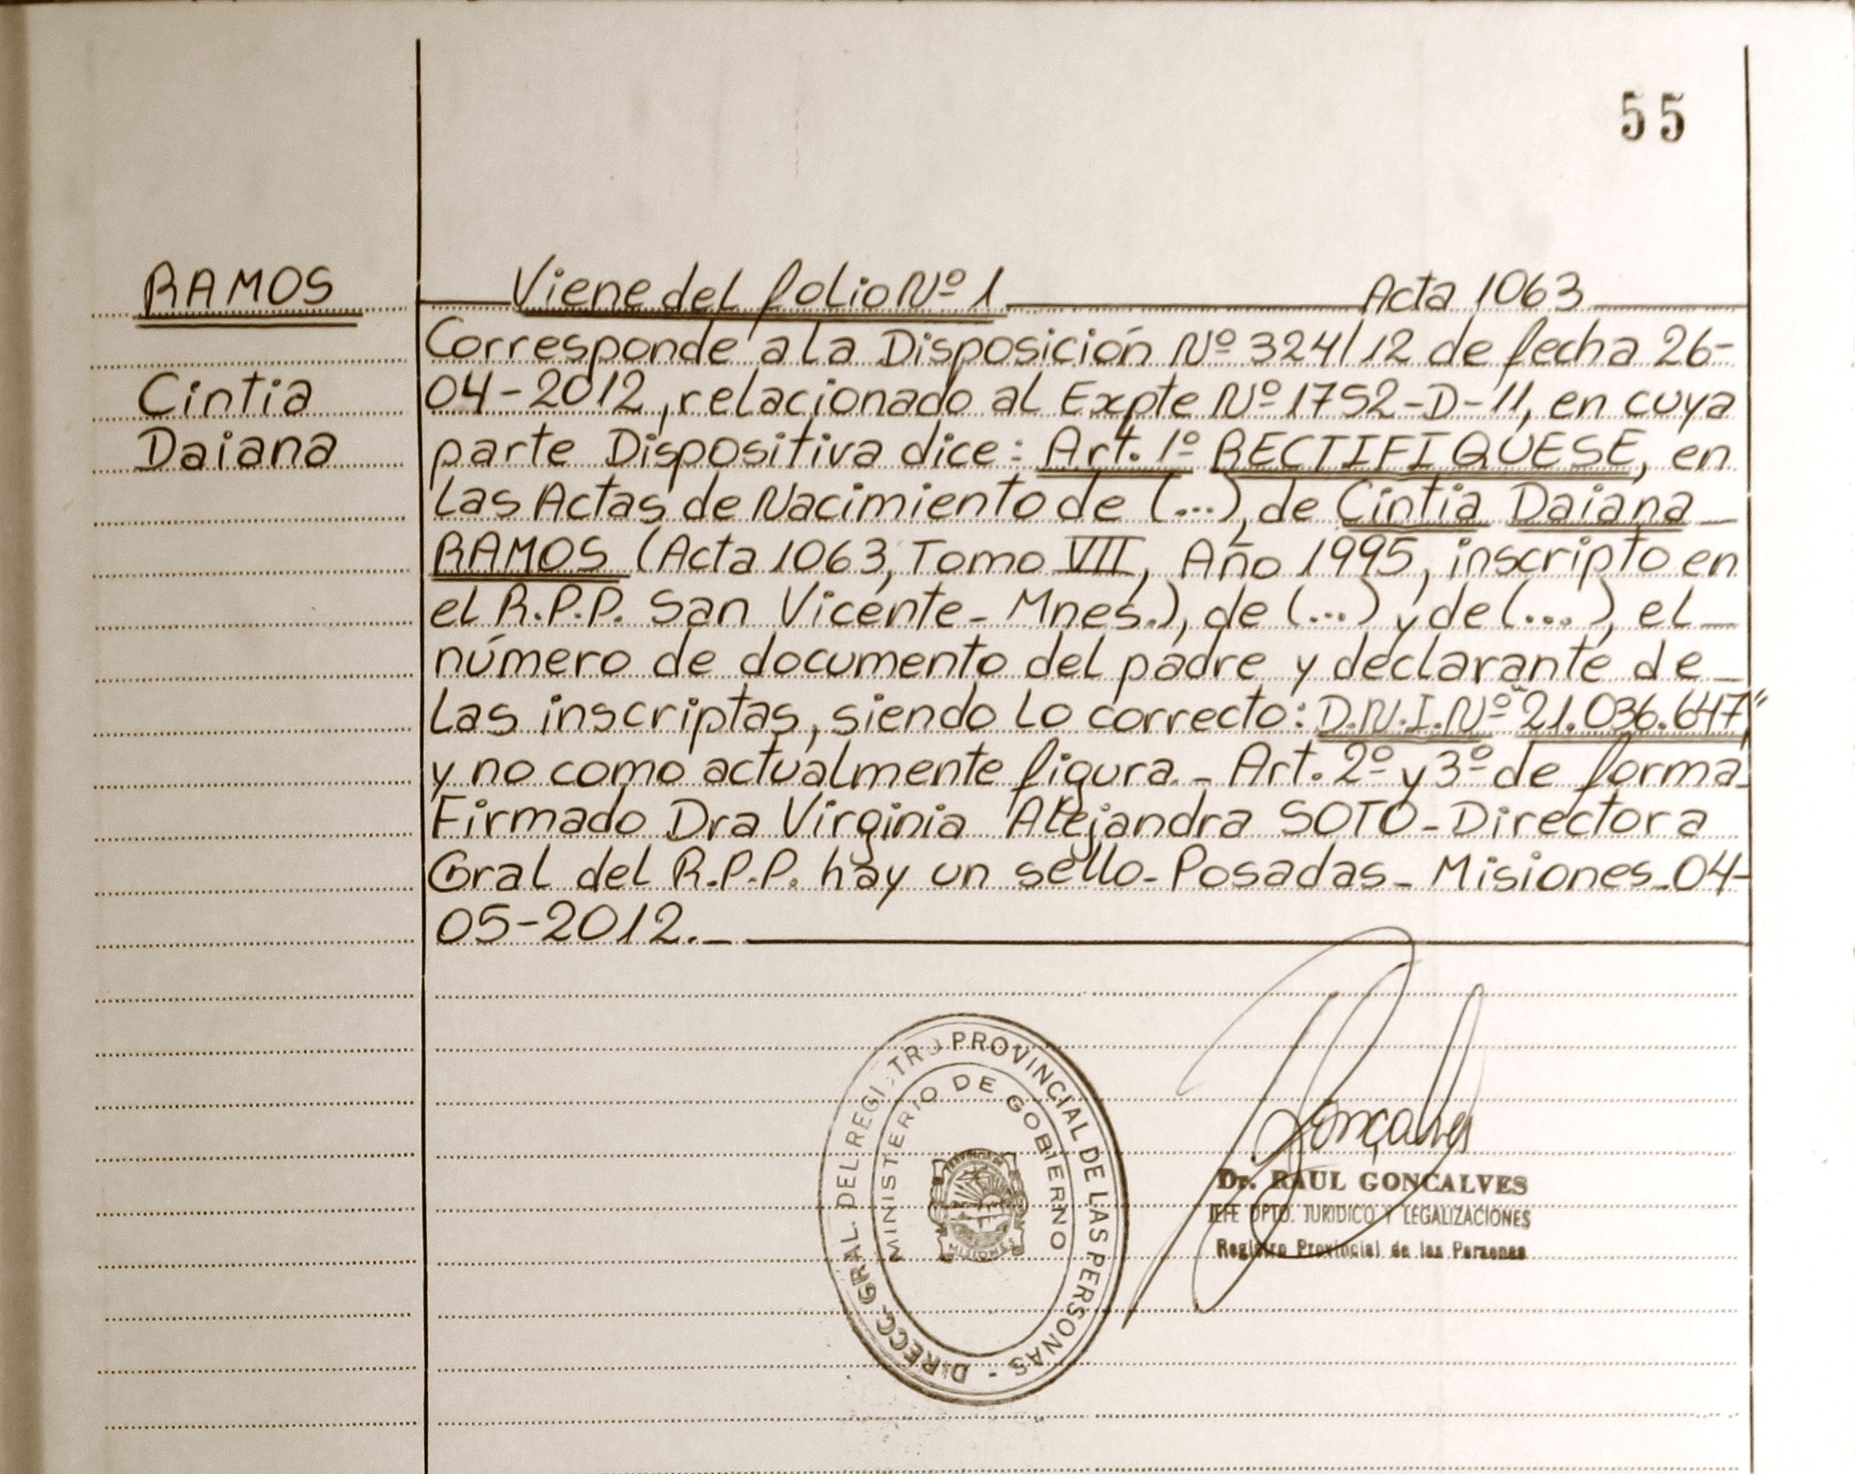 55
RAMOS
Cintia
Daiana
Viene del folio Nº 1 Acta 1063
Corresponde a la Disposición Nº 324/12 de fecha 26-
04-2012, relacionado al Expte Nº 1752-D-11, en cuya
parte Dispositiva dice: Art. 1º RECTIFIQUESE, en
las Actas de Nacimiento de (...), de Cintia Daiana
RAMOS (Acta 1063, Tomo VII, Año 1995, inscripto en
el R.P.P. San Vicente - Mnes.), de (...) y de (...), el
número de documento del padre y declarante de
las inscriptas, siendo lo correcto: D.N.I. Nº 21.036.647"
y no como actualmente figura. - Art. 2º y 3º de forma
Firmado Dra Virginia Alejandra SOTO - Directora
Gral del R.P.P. hay un sello - Posadas - Misiones - 04-
05-2012. -
DIRECC. GRAL. DEL REGISTRO PROVINCIAL DE LAS PERSONAS -
MINISTERIO DE GOBIERNO
PROVINCIA DE
MISIONES
Gonçalves
Dr. RAUL GONCALVES
JEFE DPTO. JURIDICO Y LEGALIZACIONES
Registro Provincial de las Personas